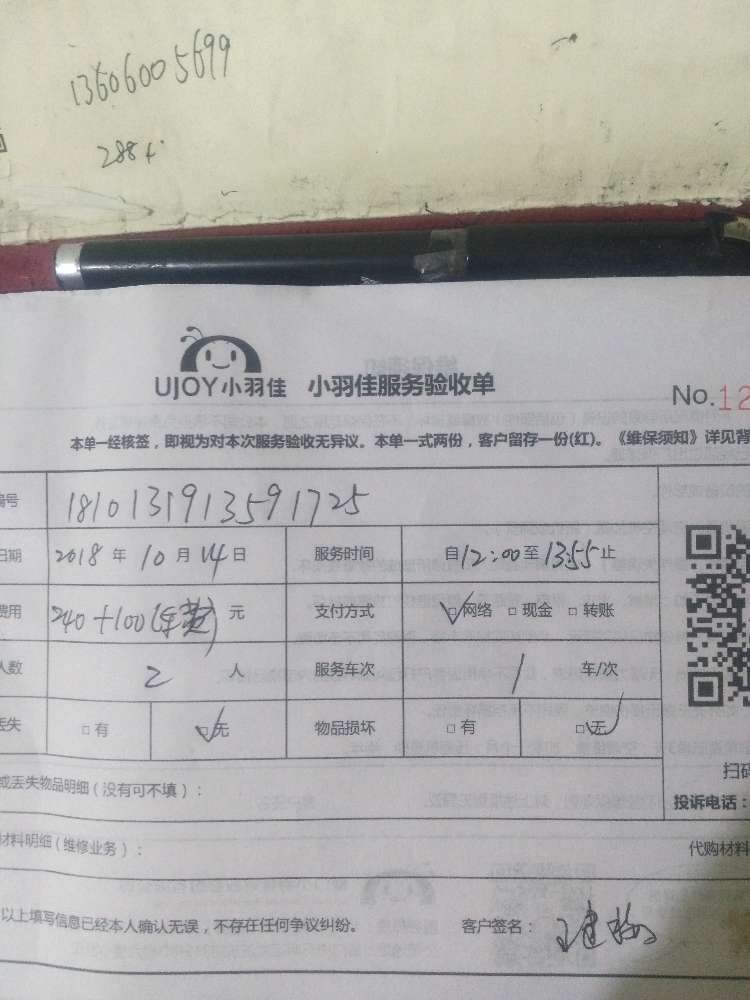 13606005699
288+
UJOY小羽佳 小羽佳服务验收单
No.12
本单一经核签，即视为对本次服务验收无异议。本单一式两份，客户留存一份(红)。《维保须知》详见背
编号 1810131913591725
日期 2018 年 10 月 14 日 服务时间 自12:00至13:55止
费用 240+100(车费) 元 支付方式 ☑网络 □现金 □转账
人数 2 人 服务车次 1 车/次
丢失 □有 ☑无 物品损坏 □有 ☑无
扫码
或丢失物品明细（没有可不填）：
投诉电话：
材料明细（维修业务）：
代购材料
以上填写信息已经本人确认无误，不存在任何争议纠纷。 客户签名：